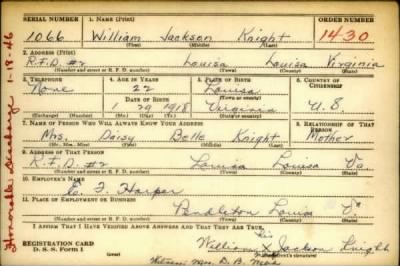 SERIAL NUMBER 1. NAME (Print) ORDER NUMBER
1066 William Jackson Knight 1430
(First) (Middle) (Last)
2. ADDRESS (Print)
R.F.D. #2 Louisa Louisa Virginia
(Number and street or R. F. D. number) (Town) (County) (State)
3. TELEPHONE 4. AGE IN YEARS 5. PLACE OF BIRTH 6. COUNTRY OF CITIZENSHIP
None 22 Louisa
DATE OF BIRTH (Town or county)
1 29 1918 Virginia U.S
(Exchange) (Number) (Mo.) (Day) (Yr.) (State or country)
7. NAME OF PERSON WHO WILL ALWAYS KNOW YOUR ADDRESS 8. RELATIONSHIP OF THAT PERSON
Mrs. Daisy Belle Knight Mother
(Mr., Mrs., Miss) (First) (Middle) (Last)
9. ADDRESS OF THAT PERSON
R.F.D. #2 Louisa Louisa Va
(Number and street or R. F. D. number) (Town) (County) (State)
10. EMPLOYER'S NAME
Harper
11. PLACE OF EMPLOYMENT OR BUSINESS
Pendleton Louisa Va
(Number and street or R. F. D. number) (Town) (County) (State)
I AFFIRM THAT I HAVE VERIFIED ABOVE ANSWERS AND THAT THEY ARE TRUE.
REGISTRATION CARD
D. S. S. Form 1
His
William X Jackson Knight
(Registrant's signature)
Witness Mrs. D. B.
Honorable Discharge 1-18-46